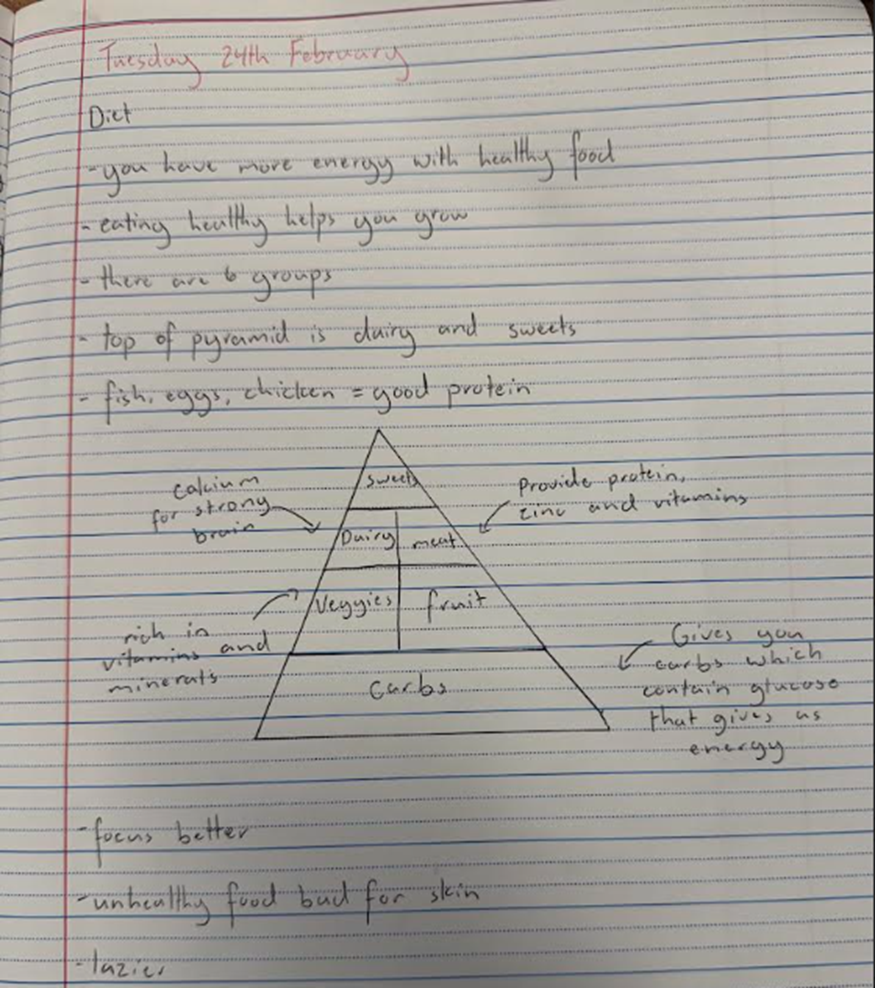 Tuesday 24th February
Diet
-you have more energy with healthy food
- eating healthy helps you grow
- there are 6 groups
- top of pyramid is dairy and sweets
- fish, eggs, chicken = good protein
sweets
calcium
for strong
brain
Provide protein,
zinc and vitamins
Dairy
meat
Veggies
fruit
rich in
vitamins and
minerals
Gives you
carbs which
contain glucose
that gives us
energy
Carbs
-focus better
-unhealthy food bad for skin
-lazier